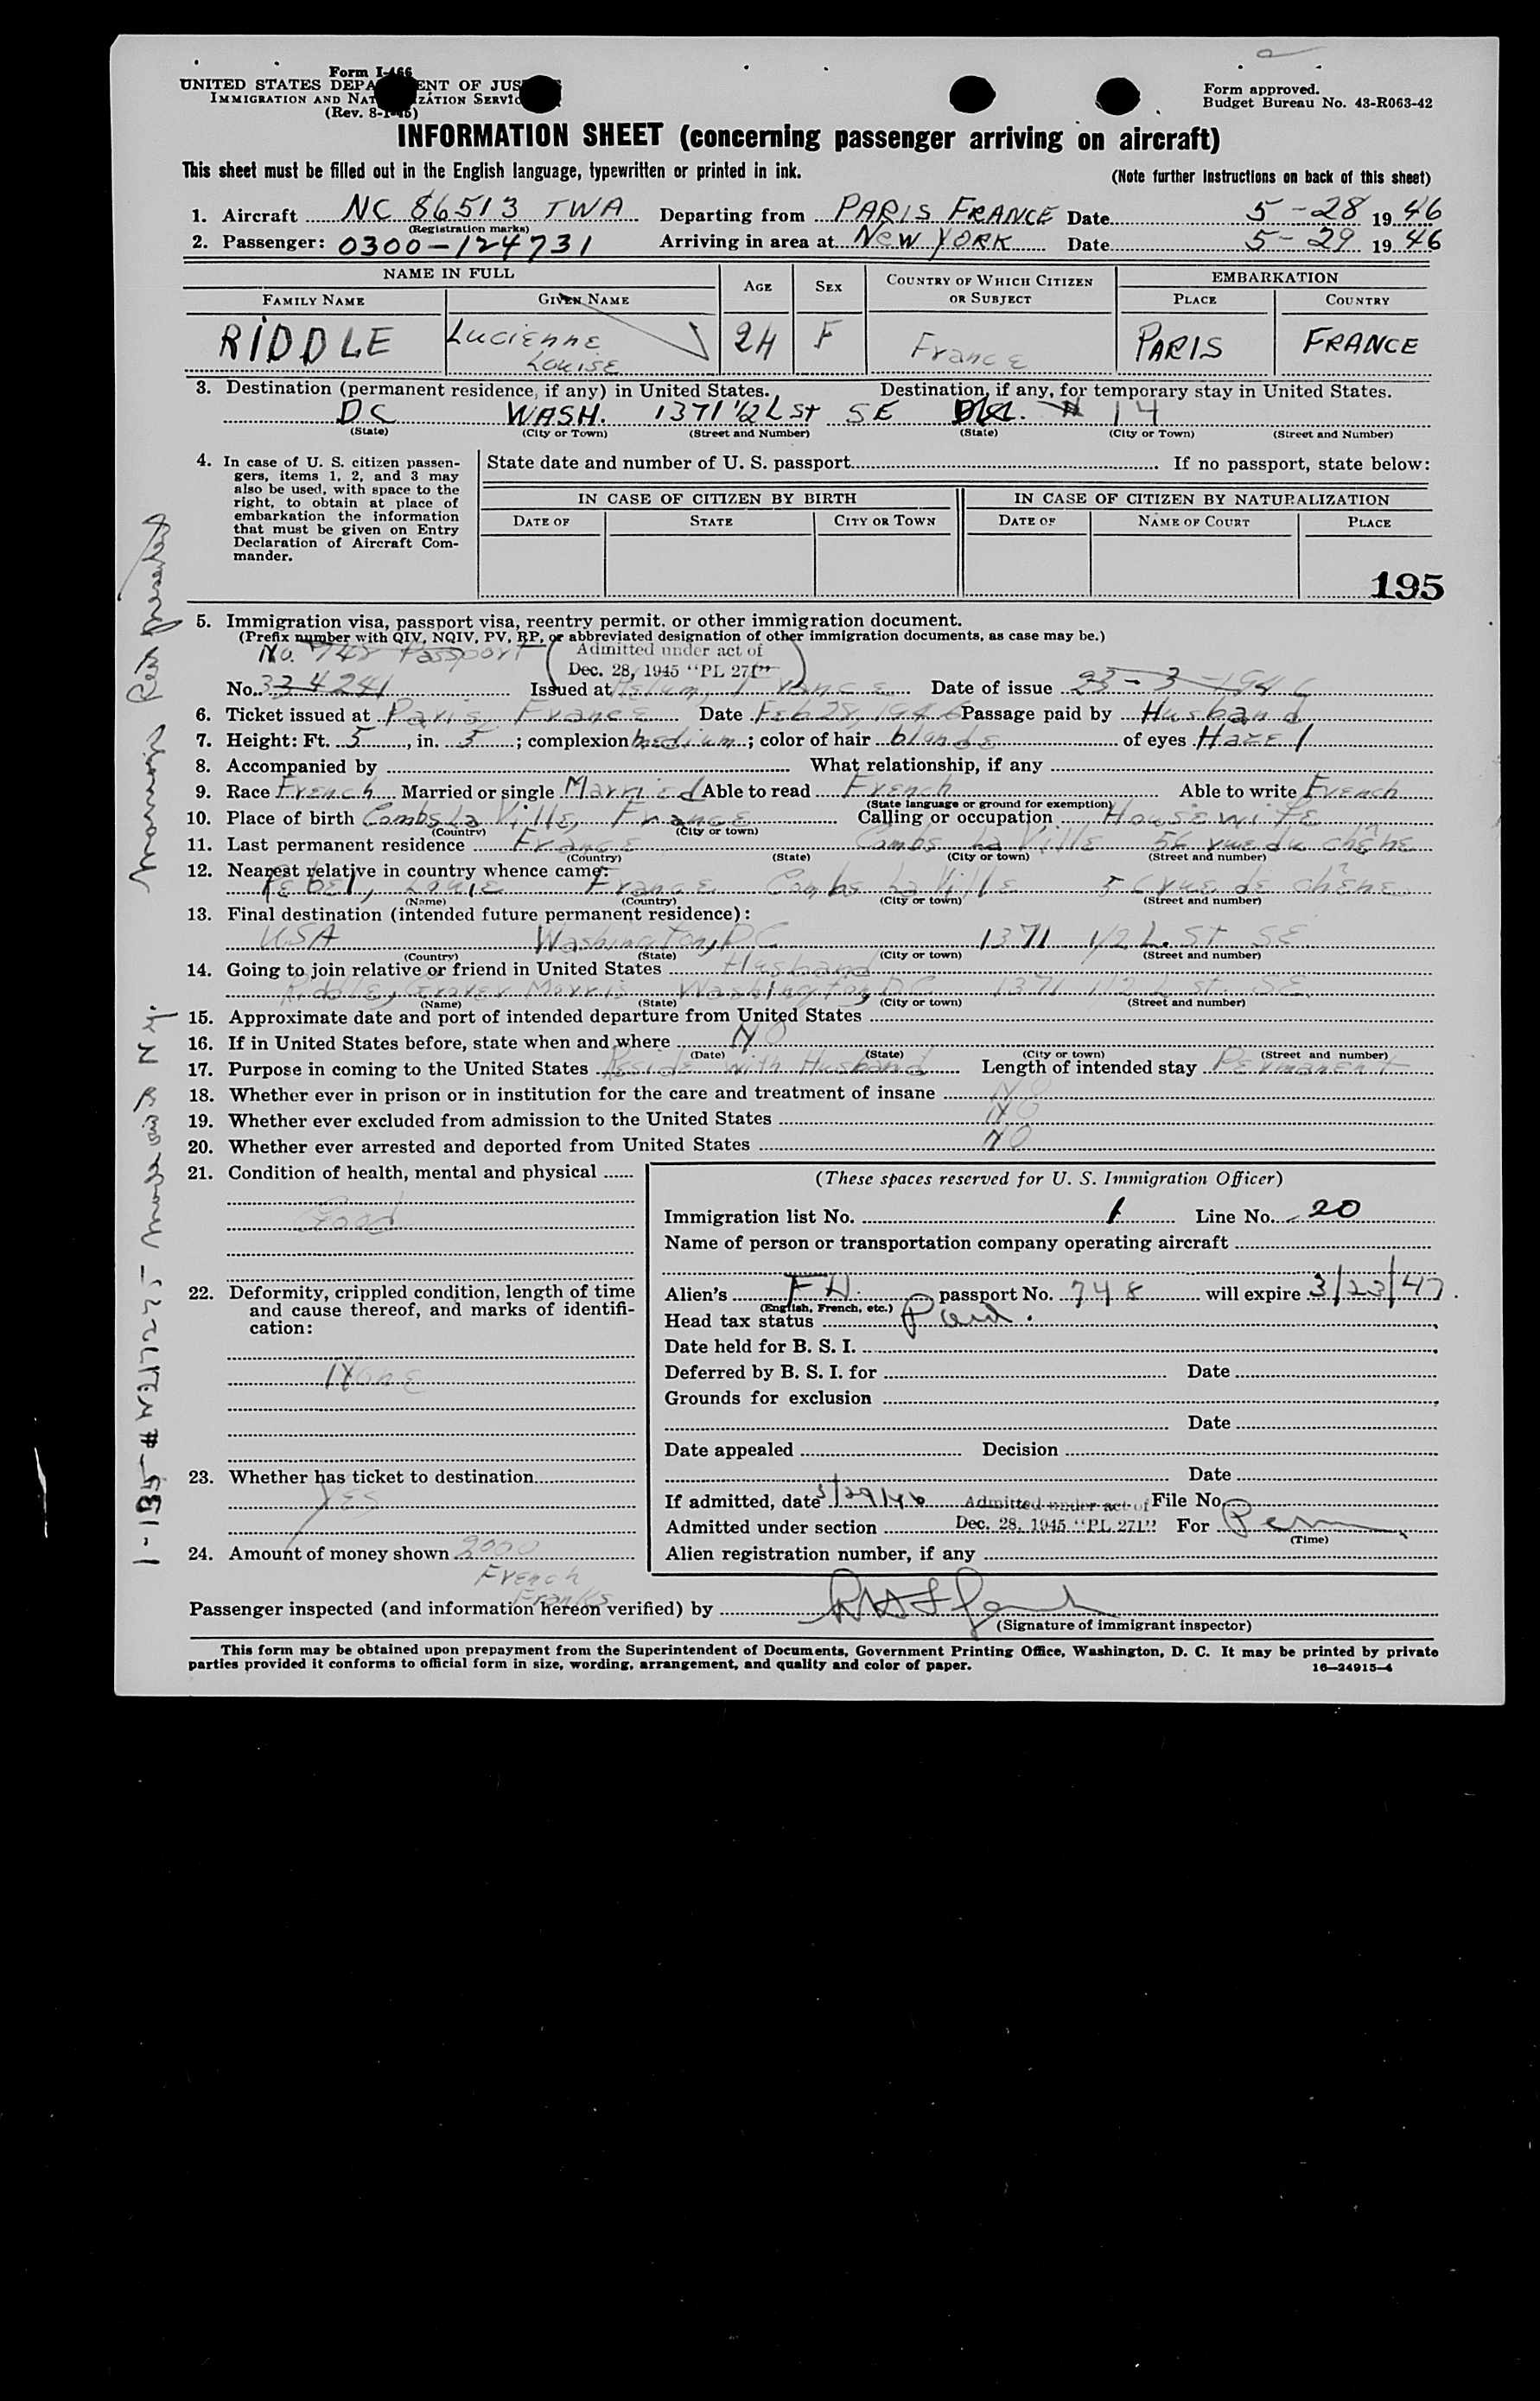 Form I-466
UNITED STATES DEPARTMENT OF JUSTICE
IMMIGRATION AND NATURALIZATION SERVICE
(Rev. 8-1-45)
Form approved.
Budget Bureau No. 43-R063-42
INFORMATION SHEET (concerning passenger arriving on aircraft)
This sheet must be filled out in the English language, typewritten or printed in ink.
(Note further instructions on back of this sheet)
1. Aircraft NC 86513 TWA Departing from PARIS FRANCE Date 5-28 1946
(Registration marks)
2. Passenger: 0300-124731 Arriving in area at NEW YORK Date 5-29 1946
NAME IN FULL AGE SEX COUNTRY OF WHICH CITIZEN OR SUBJECT EMBARKATION
FAMILY NAME GIVEN NAME PLACE COUNTRY
RIDDLE Lucienne Louise 24 F France PARIS FRANCE
3. Destination (permanent residence, if any) in United States. Destination, if any, for temporary stay in United States.
DC WASH. 1371 1/2 L St SE 14
(State) (City or Town) (Street and Number) (State) (City or Town) (Street and Number)
4. In case of U. S. citizen passengers, items 1, 2, and 3 may also be used, with space to the right, to obtain at place of embarkation the information that must be given on Entry Declaration of Aircraft Commander.
State date and number of U. S. passport If no passport, state below:
IN CASE OF CITIZEN BY BIRTH IN CASE OF CITIZEN BY NATURALIZATION
DATE OF STATE CITY OR TOWN DATE OF NAME OF COURT PLACE
195
5. Immigration visa, passport visa, reentry permit, or other immigration document.
(Prefix number with QIV, NQIV, PV, RP, or abbreviated designation of other immigration documents, as case may be.)
No. 748 Passport Admitted under act of
Dec. 28, 1945 "PL 271"
No. 334241 Issued at Melun, France Date of issue 23-3-1946
6. Ticket issued at Paris, France Date Feb 28, 1946 Passage paid by Husband
7. Height: Ft. 5, in. 5; complexion medium; color of hair blonde of eyes Hazel
8. Accompanied by What relationship, if any
9. Race French Married or single Married Able to read French Able to write French
(State language or ground for exemption)
10. Place of birth Combs La Ville, France Calling or occupation Housewife
(Country) (City or town)
11. Last permanent residence France Combs La Ville 56 rue du chêne
(Country) (State) (City or town) (Street and number)
12. Nearest relative in country whence came:
Louie France Combs La Ville 56 rue de chêne
(Name) (Country) (City or town) (Street and number)
13. Final destination (intended future permanent residence):
USA Washington, DC 1371 1/2 L. St SE
(Country) (State) (City or town) (Street and number)
14. Going to join relative or friend in United States Husband
Riddle, Grover Morris Washington DC 1371 1/2 L St. SE.
(Name) (State) (City or town) (Street and number)
15. Approximate date and port of intended departure from United States
16. If in United States before, state when and where NO
(Date) (State) (City or town) (Street and number)
17. Purpose in coming to the United States Reside with Husband Length of intended stay Permanent
18. Whether ever in prison or in institution for the care and treatment of insane NO
19. Whether ever excluded from admission to the United States NO
20. Whether ever arrested and deported from United States NO
21. Condition of health, mental and physical
Good
22. Deformity, crippled condition, length of time and cause thereof, and marks of identification:
None
23. Whether has ticket to destination
Yes
24. Amount of money shown 2000
French
Franks
(These spaces reserved for U. S. Immigration Officer)
Immigration list No. 1 Line No. 20
Name of person or transportation company operating aircraft
Alien's FH. passport No. 748 will expire 3/23/47.
(English, French, etc.)
Head tax status Paid.
Date held for B. S. I.
Deferred by B. S. I. for Date
Grounds for exclusion
Date
Date appealed Decision
Date
If admitted, date 5/29/46 Admitted under act of File No.
Admitted under section Dec. 28, 1945 "PL 271" For Perm
(Time)
Alien registration number, if any
Passenger inspected (and information hereon verified) by
(Signature of immigrant inspector)
This form may be obtained upon prepayment from the Superintendent of Documents, Government Printing Office, Washington, D. C. It may be printed by private
parties provided it conforms to official form in size, wording, arrangement, and quality and color of paper.
16—24915-4